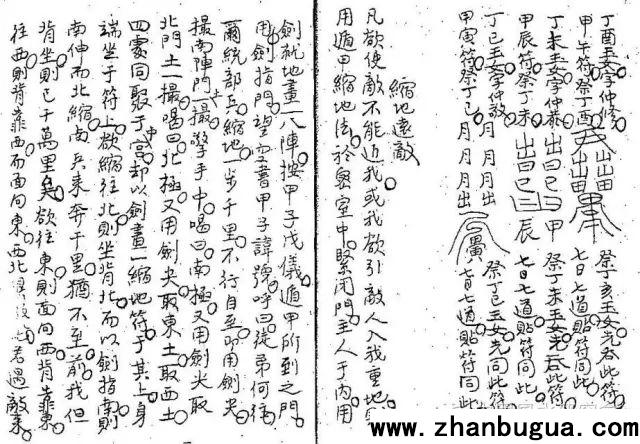 丁酉玉女字仲修
甲午符祭丁酉 出出田 祭丁亥玉女先吞此符
丁未玉女字仲恭 七日七道貼符同此
甲辰符祭丁未 出日已日甲 祭丁未玉女先吞此符
丁巳玉女字仲敬 七日七道貼符同此
甲寅符祭丁巳 月月月出 祭丁巳玉女先同此符
七日七道貼符同此
縮地遠敵
凡欲使敵不能近我或我欲引敵人入我重地
用遁甲縮地法於密室中緊閉門主人于內用
劍就地畫一八陣按甲子戊儀遁甲所到之門
用劍指門望空書甲子諱號呼曰徒弟何往
爾統部兵縮地一步千里不行自至叩用劍尖
撮南陣門土一撮擎手中喝曰南極又用劍尖取
北門土一撮喝曰北極又用劍尖取東土取西土
四處同聚于中宮却以劍畫一縮地符于其上身
端坐于符上欲縮往北則坐背北而以劍指南則
南伸而北縮南兵來奔千里猶不至前我但
背坐則已千萬里矣欲往東則面向西背靠東
往西則背靠西而面向東西北 若遇敵東
www.zhanbugua.com